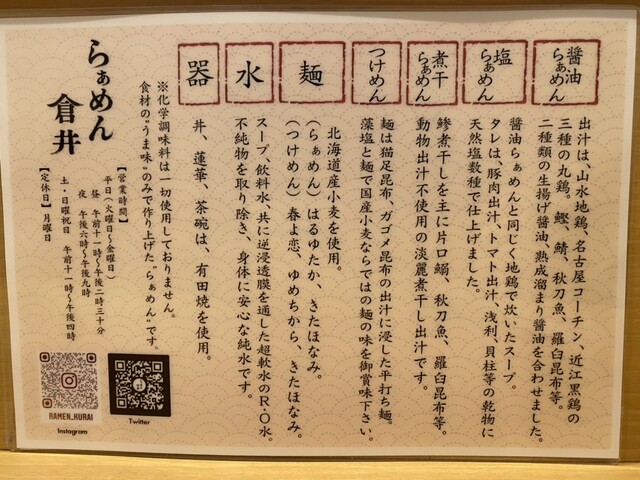 醤油らぁめん
出汁は、山水地鶏、名古屋コーチン、近江黒鶏の
三種の丸鶏。鰹、鯖、秋刀魚、羅臼昆布等。
二種類の生揚げ醤油、熟成溜まり醤油を合わせました。
塩らぁめん
醤油らぁめんと同じく地鶏で炊いたスープ。
タレは、豚肉出汁、トマト出汁、浅利、貝柱等の乾物に
天然塩数種で仕上げました。
煮干らぁめん
鯵煮干しを主に片口鰯、秋刀魚、羅臼昆布等。
動物出汁不使用の淡麗煮干し出汁です。
つけめん
麺は猫足昆布、ガゴメ昆布の出汁に浸した平打ち麺。
藻塩と麺で国産小麦ならではの麺の味を御賞味下さい。
麺
北海道産小麦を使用。
(らぁめん) はるゆたか、きたほなみ。
(つけめん) 春よ恋、ゆめちから、きたほなみ。
水
スープ、飲料水、共に逆浸透膜を通した超軟水のR・O水。
不純物を取り除き、身体に安心な純水です。
器
丼、蓮華、茶碗は、有田焼を使用。
※化学調味料は一切使用しておりません。
食材の"うま味"のみで作り上げた"らぁめん"です。
らぁめん
倉井
【営業時間】
平日(火曜日〜金曜日)
昼 午前十一時〜午後二時三十分
夜 午後六時〜午後九時
土・日曜祝日 午前十一時〜午後四時
【定休日】月曜日
RAMEN_KURAI
Instagram
Twitter